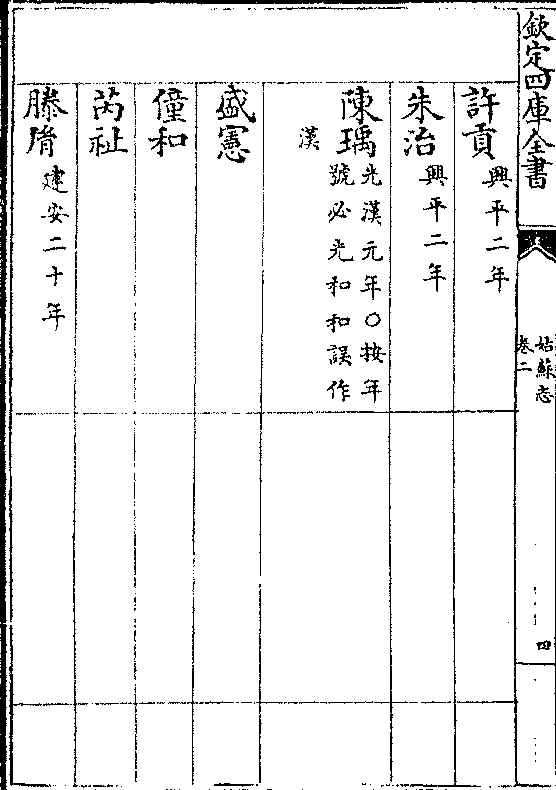 欽定四庫全書
姑蘇志
卷二
四
許貢 興平二年
朱治 興平二年
陳瑀 光漢元年○按年
號必光和和誤作
漢
盛憲
僮和
芮祉
滕胤 建安二十年